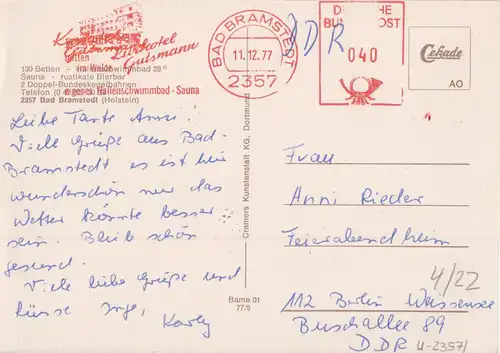 Kurhotel Gutsmann
130 Betten - Hallenschwimmbad 28°
Sauna - rustikale Bierbar
2 Doppel-Bundeskegelbahnen
Telefon
2357 Bad Bramstedt (Holstein)
eigenes Hallenschwimmbad - Sauna
BAD BRAMSTEDT
11.12.77
2357
DEUTSCHE
BUNDESPOST
040
DDR
Cekade
AO
Liebe Tante Anni!
Viele Grüße aus Bad-
Bramstedt es ist hier
wunderschön nur das
Wetter könnte besser
sein. Bleib schön
gesund.
Viele liebe Grüße und
Küsse
Karly
Cramers Kunstanstalt KG, Dortmund
Bame 01
77/5
Frau
Anni Rieder
Feierabendheim
4/22
112 Berlin Weissensee
Buschallee 89
DDR
U-2357/